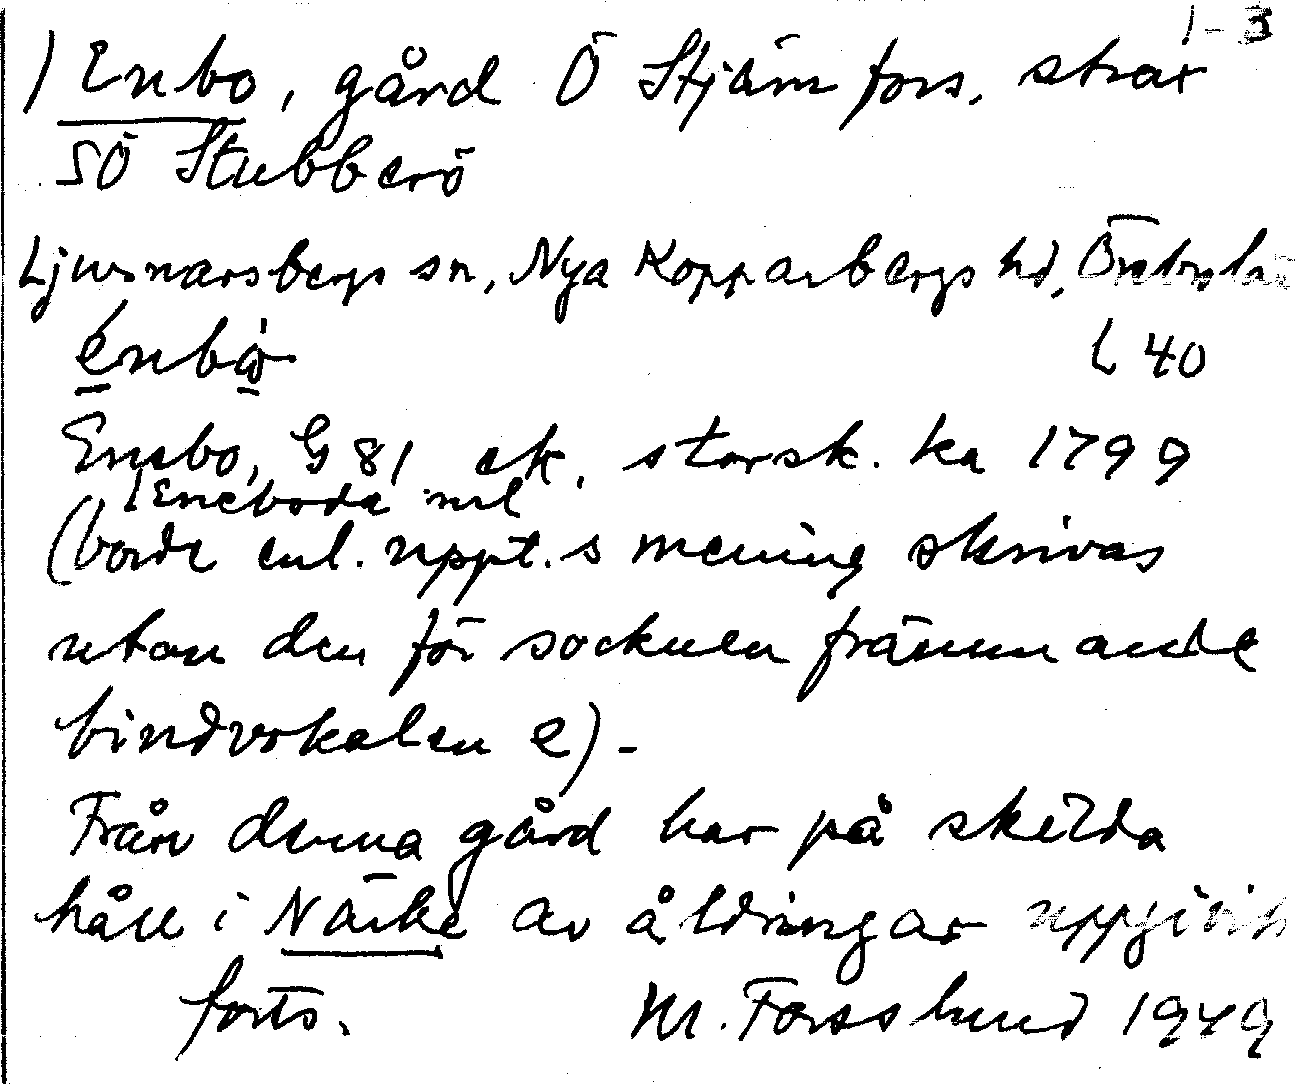 1-3
1) Enbo, gård Ö Stjärnfors, strax
SÖ Stubberö
Ljusnarsbergs sn, Nya Kopparbergs hd, Örebro län
L 40
Enebo, G 81 ek, storsk. ka 1799
Eneboda
(borde enl. uppt.s mening skrivas
utan den för socknen främmande
bindvokalen e). -
Från denna gård har på skilda
håll i Närke av åldringar uppgivits
forts. M. Forsslund 1949